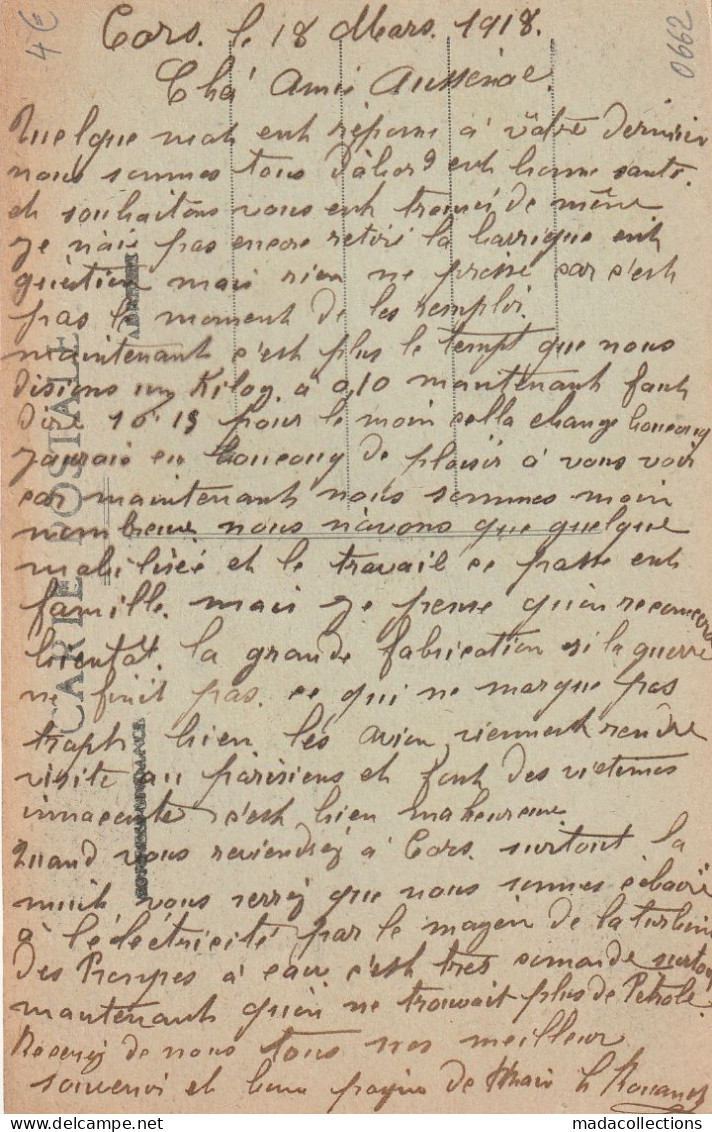 4€
0662
Cors. le 18 Mars. 1918.
Chér Amis Aussenac.
Quelque mots ent réponse à vôtre dernière
nous sommes tous d'abord ent bonne santé.
et souhaitons vous ent trouvéz de même
Je n'ais pas encore retiré la barrique ent
quéstion mais rien ne presse car c'est
pas le moment de les remploi.
maintenant c'est plus le tempt que nous
disions un Kilog. à 0,10 maintenant faut
dire 10. 15 pour le moin cella change boucoup
J'aurais eu boucoup de plaisir à vous voir
car maintenant nous sommes moin
nombreux nous n'avons que quelque
mobilisée et le travail ce passe ent
famille. mais je pense qu'on recomencera
bientôt. la grande fabrication si la guerre
ne finit pas. ce qui ne marque pas
traph bien les avion viennent rendre
visite au parisiens et font des victimes
innocente c'est bien maheureux.
Quand vous reviendréz à Cors. surtout la
nuit vous verréz que nous sommes éclairé
à l'éléctricité par le moyen de la turbine
des Pompes à eau c'est très comande surtout
maintenant qu'on ne trouvait plus de Pétrole.
Recevéz de nous tous nos meilleur
souvenir et bonne poigné de main
CARTE POSTALE
CORRESPONDANCE
ADRESSE
madacollections